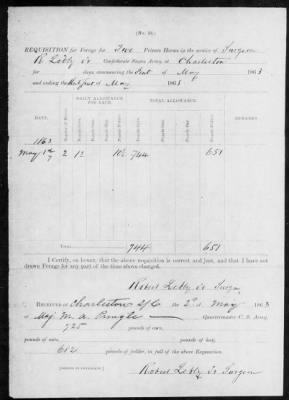 (No. 40.)
REQUISITION for Forage for Two Private Horses in the service of Surgeon
R Lebby Jr Confederate States Army, at Charleston
for days, commencing the First of May 1863
and ending the first of May 1863
DATE. DAILY ALLOWANCE FOR EACH. TOTAL ALLOWANCE. REMARKS
1863
May 1st 2 12 10½ 744 651
Total 744 651
I Certify, on honor, that the above requisition is correct and just, and that I have not
drawn Forage for any part of the time above charged.
Robert Lebby Jr Surgeon
RECEIVED at Charleston S/C the 2d May 1863
of Maj M. A. Pringle Quartermaster C. S. Army,
725 pounds of corn,
pounds of oats, pounds of hay,
612 pounds of fodder, in full of the above Requisition.
[SIGNED IN DUPLICATE.]
Robert Lebby Jr Surgeon